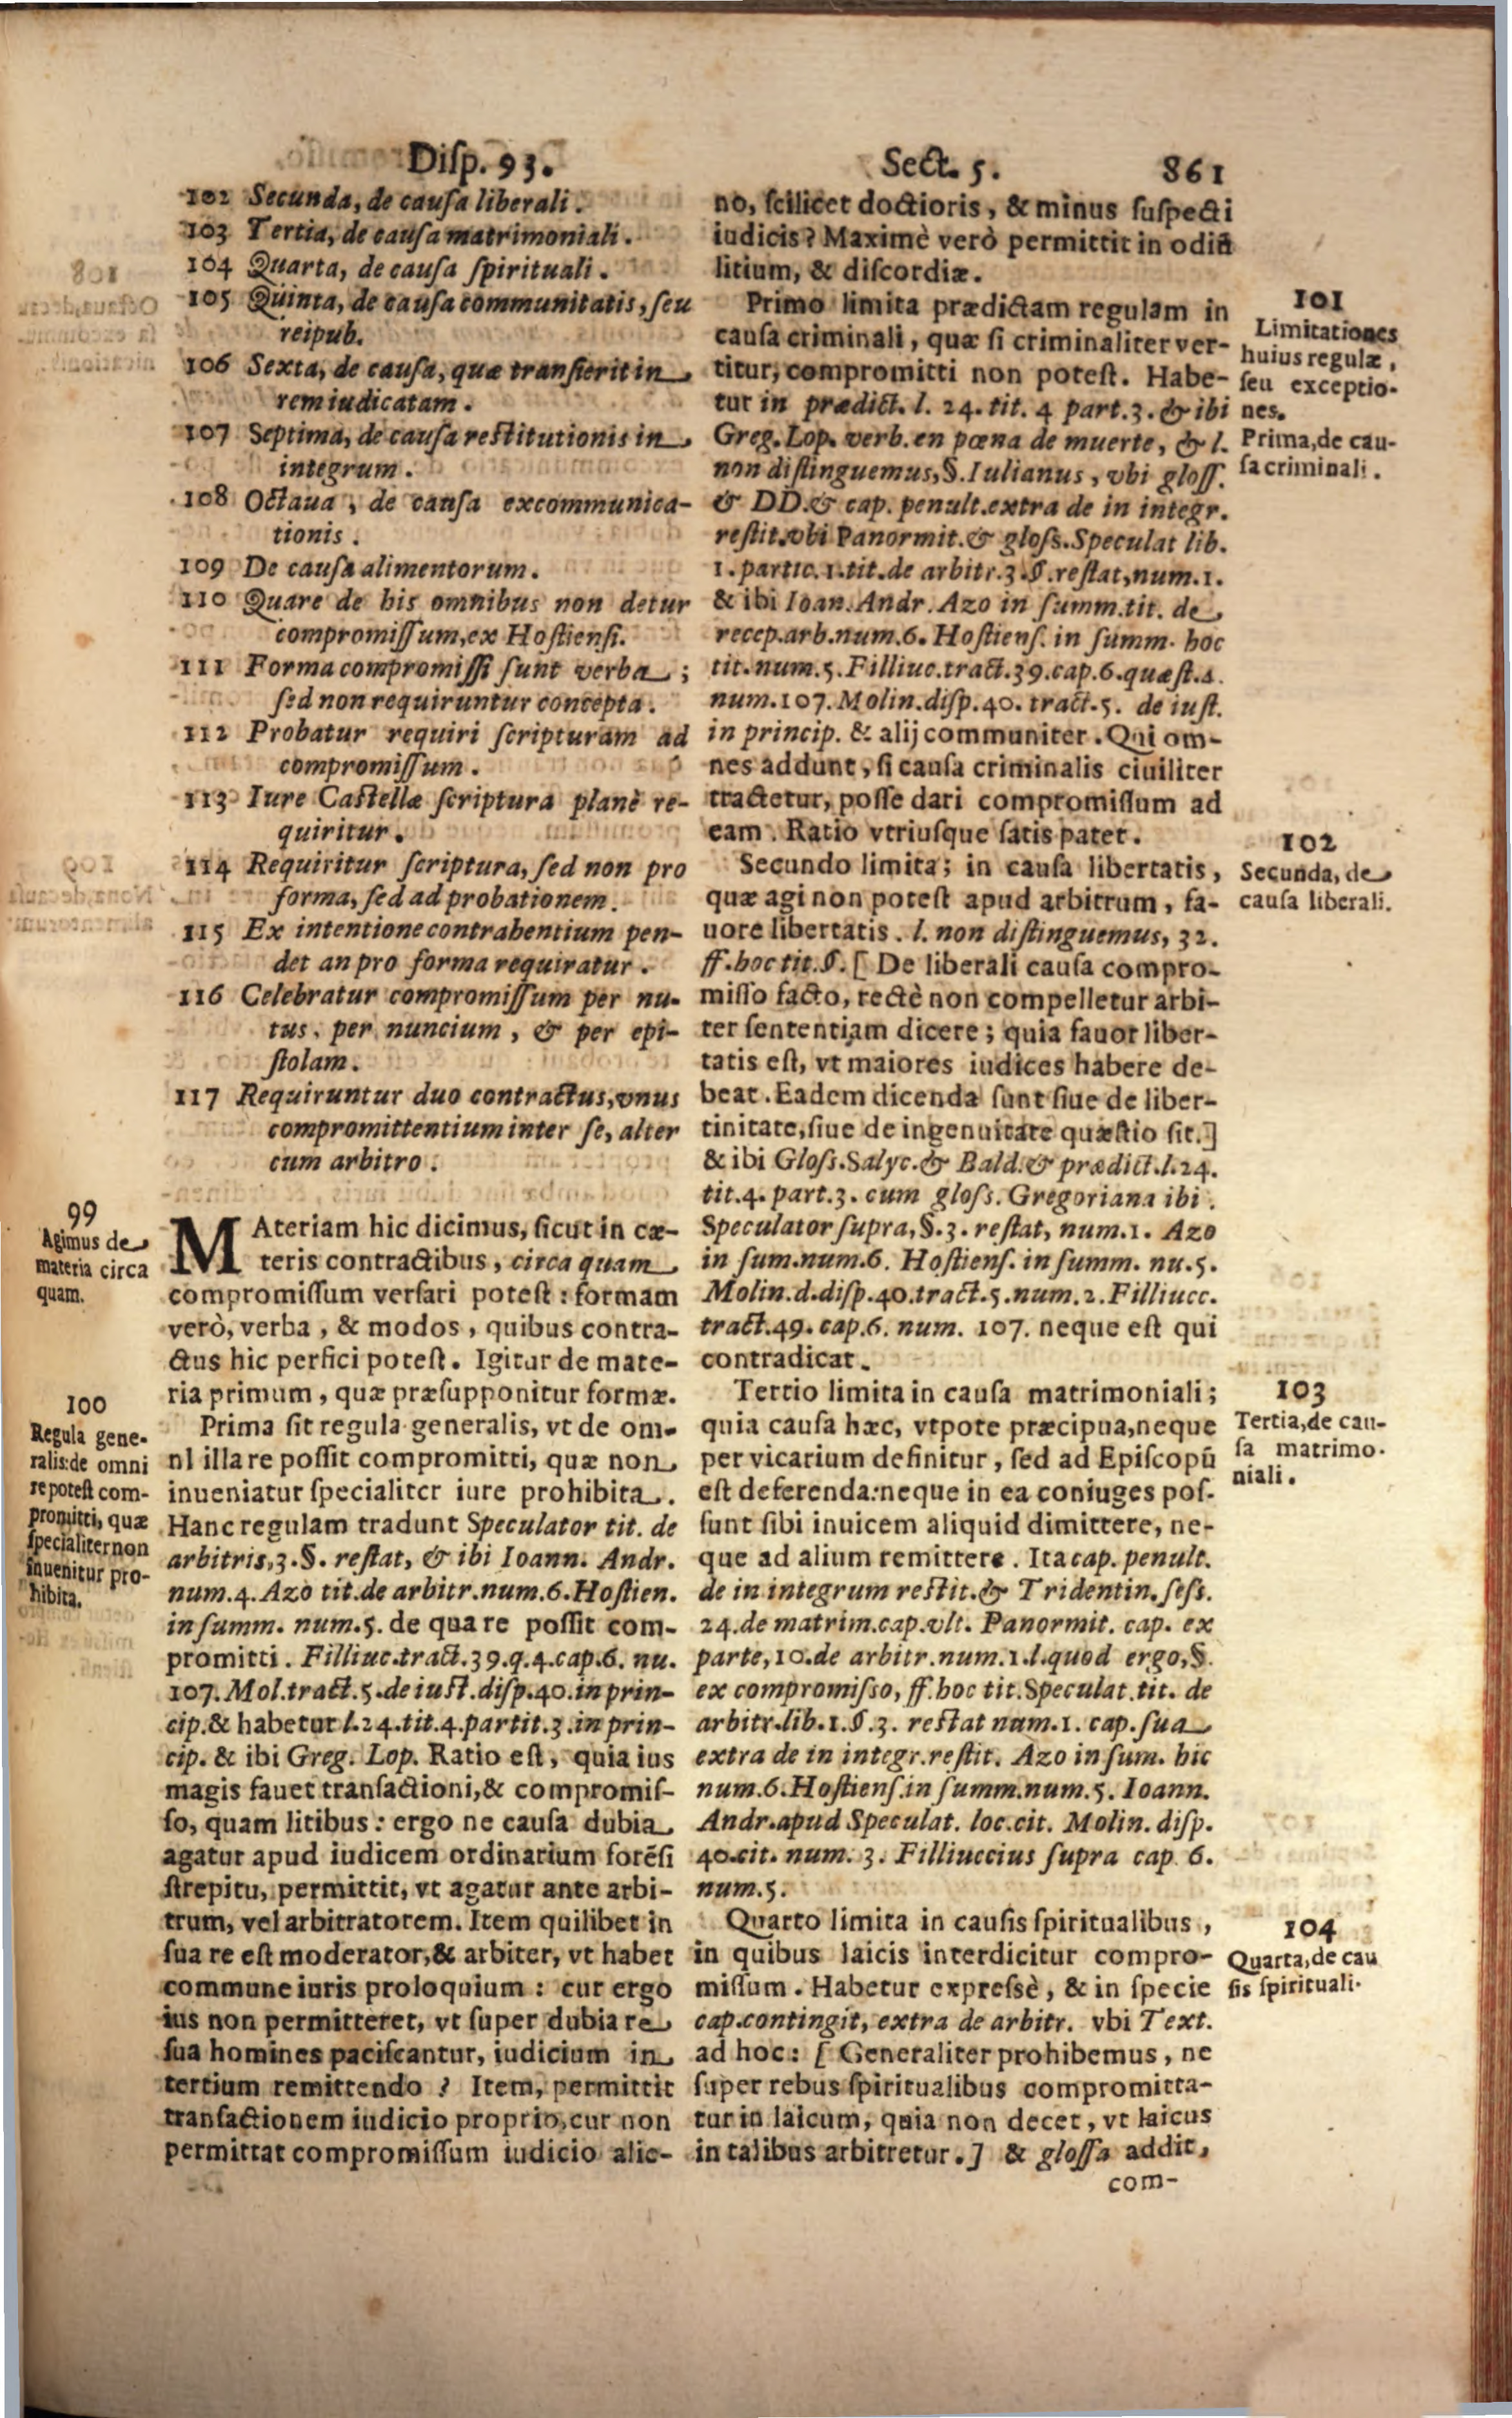 Disp. 93.
Sect. 5. 861
102 Secunda, de causa liberali.
103 Tertia, de causa matrimoniali.
104 Quarta, de causa spirituali.
105 Quinta, de causa communitatis, seu
reipub.
106 Sexta, de causa, quæ transierit in
rem iudicatam.
107 Septima, de causa restitutionis in
integrum.
108 Octaua, de causa excommunica-
tionis.
109 De causa alimentorum.
110 Quare de his omnibus non detur
compromissum, ex Hostiensi.
111 Forma compromissi sunt verba;
sed non requiruntur concepta.
112 Probatur requiri scripturam ad
compromissum.
113 Iure Castellæ scriptura planè re-
quiritur.
114 Requiritur scriptura, sed non pro
forma, sed ad probationem.
115 Ex intentione contrahentium pen-
det an pro forma requiratur.
116 Celebratur compromissum per nu-
tus, per nuncium, & per epi-
stolam.
117 Requiruntur duo contractus, vnus
compromittentium inter se, alter
cum arbitro.
99
Agimus de
materia circa
quam.
MAteriam hic dicimus, sicut in cæ-
teris contractibus, circa quam
compromissum versari potest: formam
verò, verba, & modos, quibus contra-
ctus hic perfici potest. Igitur de mate-
ria primum, quæ præsupponitur formæ.
100
Regula gene-
ralis: de omni
re potest com-
promitti, quæ
specialiter non
inuenitur pro-
hibita.
Prima sit regula generalis, vt de om-
ni illa re possit compromitti, quæ non
inueniatur specialiter iure prohibita.
Hanc regulam tradunt Speculator tit. de
arbitris, 3. §. restat, & ibi Ioann. Andr.
num. 4. Azo tit. de arbitr. num. 6. Hostien.
in summ. num. 5. de qua re possit com-
promitti. Filliuc. tract. 39. q. 4. cap. 6. nu.
107. Mol. tract. 5. de iust. disp. 40. in prin-
cip. & habetur l. 24. tit. 4. partit. 3. in prin-
cip. & ibi Greg. Lop. Ratio est, quia ius
magis fauet transactioni, & compromis-
so, quam litibus: ergo ne causa dubia
agatur apud iudicem ordinarium forēsi
strepitu, permittit, vt agatur ante arbi-
trum, vel arbitratorem. Item quilibet in
sua re est moderator, & arbiter, vt habet
commune iuris proloquium: cur ergo
ius non permitteret, vt super dubia re
sua homines paciscantur, iudicium in
tertium remittendo? Item, permittit
transactionem iudicio proprio, cur non
permittat compromissum iudicio alie-
no, scilicet doctioris, & minus suspecti
iudicis? Maximè verò permittit in odiū
litium, & discordiæ.
101
Limitationes
huius regulæ,
seu exceptio-
nes.
Prima, de cau-
sa criminali.
Primo limita prædictam regulam in
causa criminali, quæ si criminaliter ver-
titur, compromitti non potest. Habe-
tur in prædict. l. 24. tit. 4 part. 3. & ibi
Greg. Lop. verb. en pœna de muerte, & l.
non distinguemus, §. Iulianus, vbi gloss.
& DD. & cap. penult. extra de in integr.
restit. vbi Panormit. & gloss. Speculat lib.
1. partic. 1. tit. de arbitr. 3. §. restat, num. 1.
& ibi Ioan. Andr. Azo in summ. tit. de
recep. arb. num. 6. Hostiens. in summ. hoc
tit. num. 5. Filliuc. tract. 39. cap. 6. quæst. 4.
num. 107. Molin. disp. 40. tract. 5. de iust.
in princip. & alij communiter. Qui om-
nes addunt, si causa criminalis ciuiliter
tractetur, posse dari compromissum ad
eam. Ratio vtriusque satis patet.
102
Secunda, de
causa liberali.
Secundo limita; in causa libertatis,
quæ agi non potest apud arbitrum, fa-
uore libertatis. l. non distinguemus, 32.
ff. hoc tit. §. [ De liberali causa compro-
misso facto, rectè non compelletur arbi-
ter sententiam dicere; quia fauor liber-
tatis est, vt maiores iudices habere de-
beat. Eadem dicenda sunt siue de liber-
tinitate, siue de ingenuitate quæstio sit.]
& ibi Gloss. Salyc. & Bald. & prædict. l. 24.
tit. 4. part. 3. cum gloss. Gregoriana ibi.
Speculator supra, §. 3. restat, num. 1. Azo
in sum. num. 6. Hostiens. in summ. nu. 5.
Molin. d. disp. 40. tract. 5. num. 2. Filliucc.
tract. 49. cap. 6. num. 107. neque est qui
contradicat.
103
Tertia, de cau-
sa matrimo-
niali.
Tertio limita in causa matrimoniali;
quia causa hæc, vtpote præcipua, neque
per vicarium definitur, sed ad Episcopū
est deferenda: neque in ea coniuges pos-
sunt sibi inuicem aliquid dimittere, ne-
que ad alium remittere. Ita cap. penult.
de in integrum restit. & Tridentin. sess.
24. de matrim. cap. vlt. Panormit. cap. ex
parte, 10. de arbitr. num. 1. l. quod ergo, §.
ex compromisso, ff. hoc tit. Speculat. tit. de
arbitr. lib. 1. §. 3. restat num. 1. cap. sua
extra de in integr. restit. Azo in sum. hic
num. 6. Hostiens. in summ. num. 5. Ioann.
Andr. apud Speculat. loc. cit. Molin. disp.
40. cit. num. 3. Filliuccius supra cap. 6.
num. 5.
104
Quarta, de cau
sis spirituali.
Quarto limita in causis spiritualibus,
in quibus laicis interdicitur compro-
missum. Habetur expressè, & in specie
cap. contingit, extra de arbitr. vbi Text.
ad hoc: [ Generaliter prohibemus, ne
super rebus spiritualibus compromitta-
tur in laicum, quia non decet, vt laicus
in talibus arbitretur.] & glossa addit,
com-